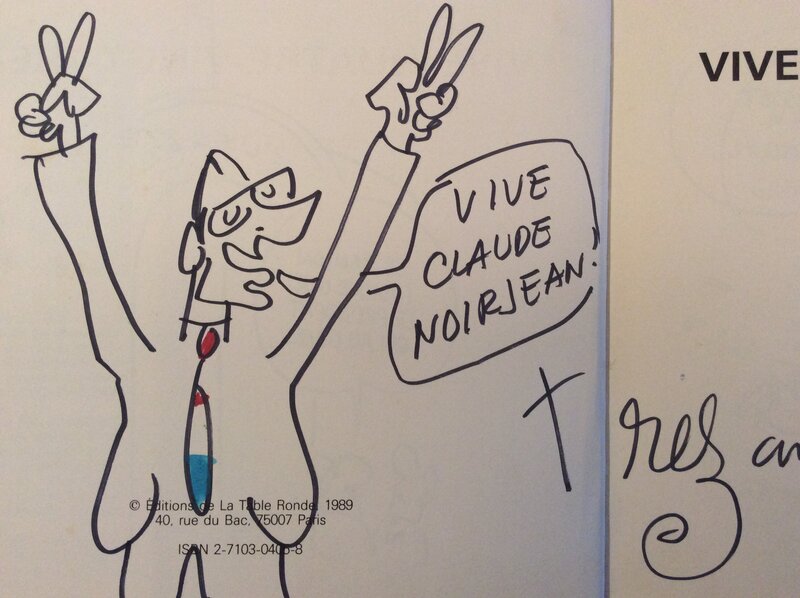 VIVE
VIVE
CLAUDE
NOIRJEAN.
très am
© Éditions de La Table Ronde, 1989
40, rue du Bac, 75007 Paris
ISBN 2-7103-0405-8